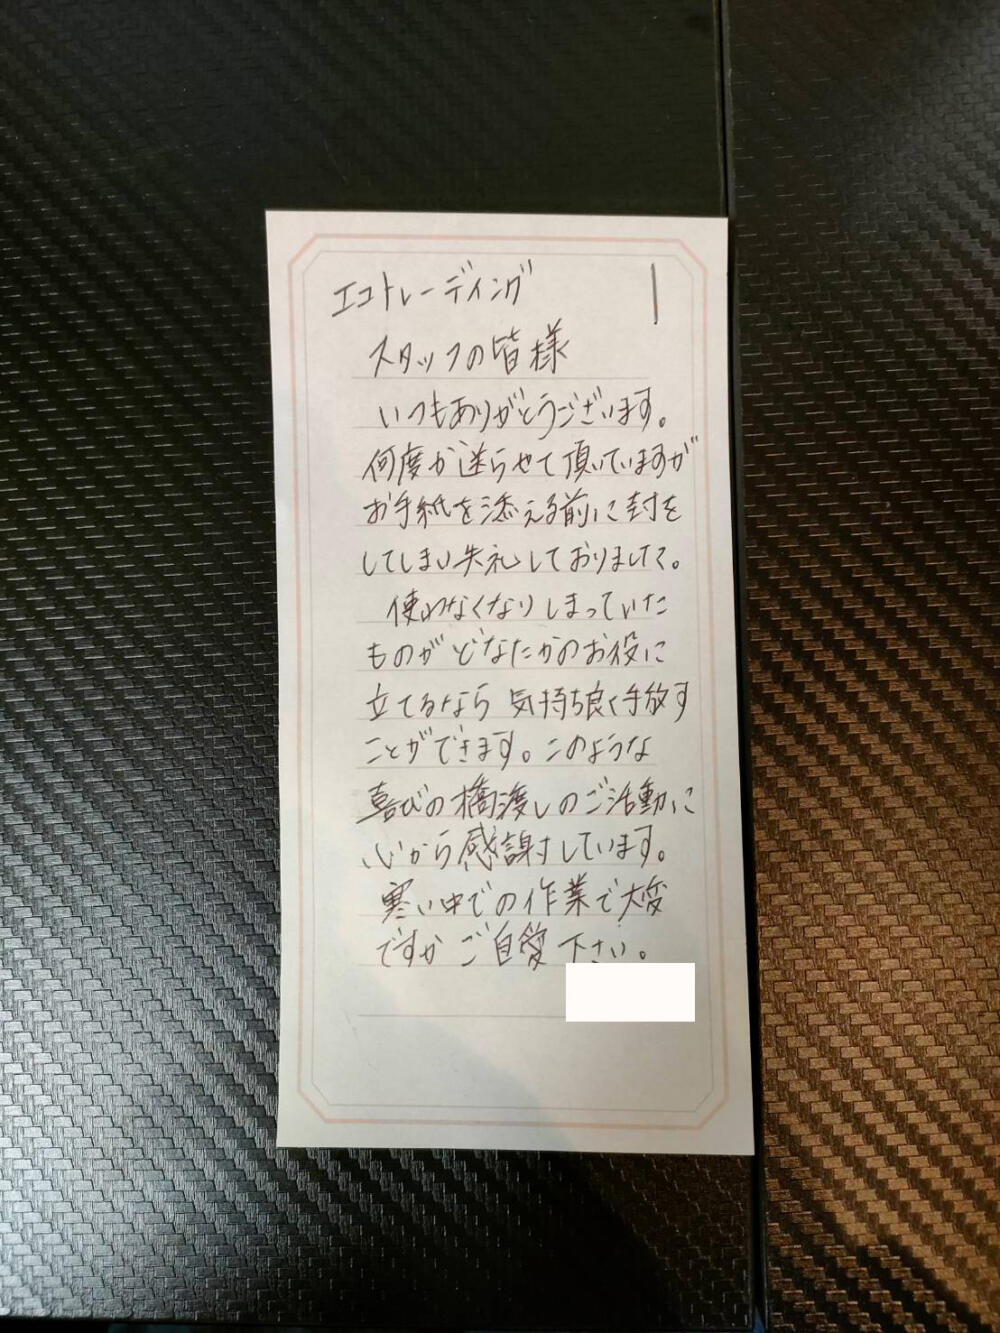 エコトレーディング
スタッフの皆様
いつもありがとうございます。
何度か送らせて頂いていますが
お手紙を添える前に封を
してしまい失礼しておりました。
使わなくなりしまっていた
ものがどなたかのお役に
立てるなら気持ち良く手放す
ことができます。このような
喜びの橋渡しのご活動に
心から感謝しています。
寒い中での作業で大変
ですがご自愛下さい。